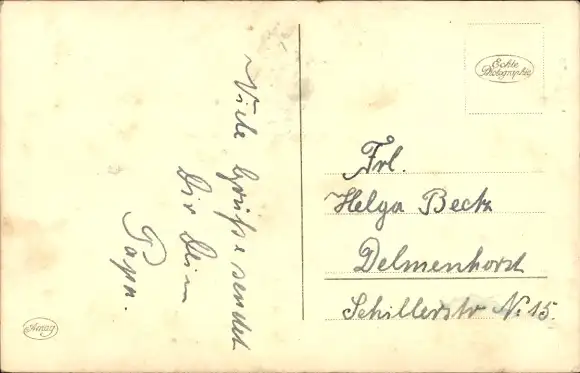 Viele Grüße sendet
Dir Dein
Papa.
Echte
Photographie
Frl.
Helga Beck
Delmenhorst
Schillerstr No 15.
Amag